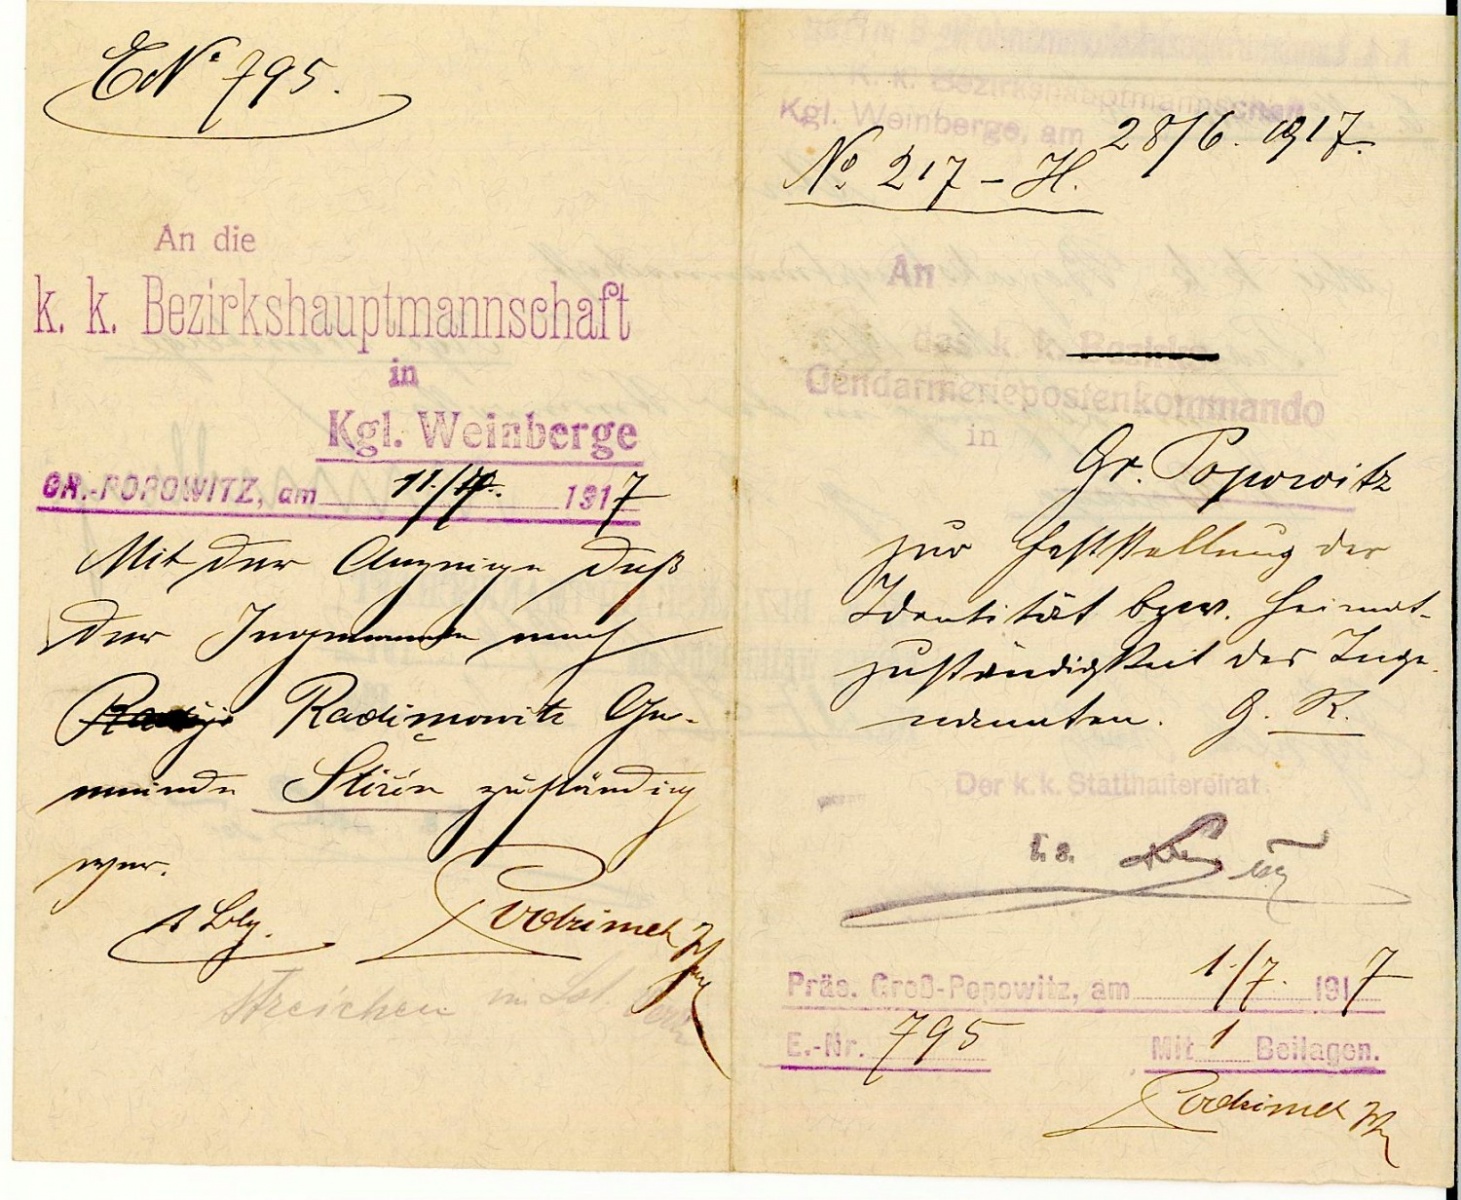 E№ 795.
An die
k. k. Bezirkshauptmannschaft
in
Kgl. Weinberge
GR.-POPOWITZ, am 11./7. 1917
Mit der Anzeige daß
der Ingenannte nach
Radimowitz Ge-
meinde Stiřin zuständig
war.
1 Blg.
Podzimek
Streichen im
K. k. Bezirkshauptmannschaft
Kgl. Weinberge, am 28/6. 1917.
№ 217 – H.
An
das k. k. Bezirks
Gendarmeriepostenkommando
in
Gr. Popowitz
zur Feststellung der
Identität bzw. Heimat-
zuständigkeit des Inge-
nannten. G. R.
Der k. k. Statthaltereirat
Präs. Groß-Popowitz, am 1./7. 1917
E.-Nr. 795 Mit 1 Beilagen.
Podzimek